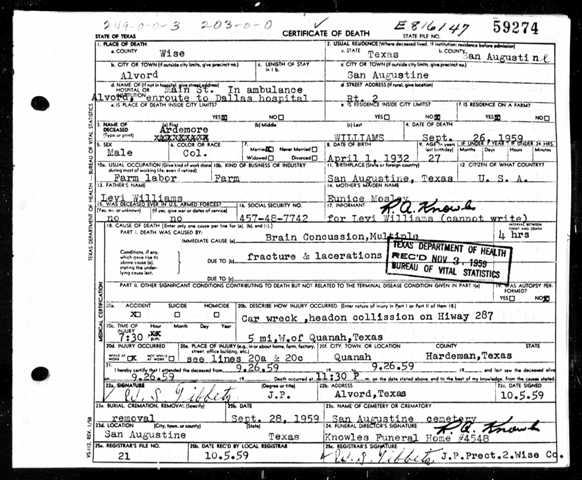 249-0-0-3 203-0-0 E816147 59274
STATE OF TEXAS CERTIFICATE OF DEATH STATE FILE NO.
1. PLACE OF DEATH 2. USUAL RESIDENCE (Where deceased lived. If institution: residence before admission)
a. COUNTY Wise a. STATE Texas b. COUNTY San Augustine
b. CITY OR TOWN (If outside city limits, give precinct no.) c. LENGTH OF STAY c. CITY OR TOWN (If outside city limits, give precinct no.)
Alvord San Augustine
d. NAME OF (If not in hospital, give street address) d. STREET ADDRESS (If rural, give location)
HOSPITAL OR INSTITUTION Main St. In ambulance
Alvord, enroute to Dallas hospital Rt. 2
e. IS PLACE OF DEATH INSIDE CITY LIMITS? e. IS RESIDENCE INSIDE CITY LIMITS? f. IS RESIDENCE ON A FARM?
YES NO YES NO YES NO
3. NAME OF DECEASED (Type or Print) (a) First (b) Middle (c) Last 4. DATE OF DEATH
Ardemore WILLIAMS Sept. 26, 1959
5. SEX 6. COLOR OR RACE 7. Married Never Married Widowed Divorced 8. DATE OF BIRTH 9. AGE (In years last birthday) IF UNDER 1 YEAR IF UNDER 24 HRS.
Male Col. April 1, 1932 27
10a. USUAL OCCUPATION (Give kind of work done during most of working life, even if retired) 10b. KIND OF BUSINESS OR INDUSTRY 11. BIRTHPLACE (State or foreign country) 12. CITIZEN OF WHAT COUNTRY?
Farm labor Farm San Augustine, Texas U. S. A.
13. FATHER'S NAME 14. MOTHER'S MAIDEN NAME
Levi Williams Eunice Mosley
15. WAS DECEASED EVER IN U.S. ARMED FORCES? 16. SOCIAL SECURITY NO. 17. INFORMANT R. A. Knowles
(Yes, no, or unknown) (If yes, give war or dates of service)
no no 457-48-7742 for Levi Williams (cannot write)
18. CAUSE OF DEATH (Enter only one cause per line for (a), (b), and (c).) INTERVAL BETWEEN ONSET AND DEATH
PART I. DEATH WAS CAUSED BY:
IMMEDIATE CAUSE (a) Brain Concussion, Multiple 4 hrs
Conditions, if any, which gave rise to above cause (a), stating the underlying cause last.
DUE TO (b) fracture & lacerations
DUE TO (c)
TEXAS DEPARTMENT OF HEALTH
REC'D NOV 3 1959
BUREAU OF VITAL STATISTICS
PART II. OTHER SIGNIFICANT CONDITIONS CONTRIBUTING TO DEATH BUT NOT RELATED TO THE TERMINAL DISEASE CONDITION GIVEN IN PART I(a) 19. WAS AUTOPSY PERFORMED?
YES NO
20a. ACCIDENT SUICIDE HOMICIDE 20b. DESCRIBE HOW INJURY OCCURRED (Enter nature of injury in Part I or Part II of item 18.)
X Car wreck ,headon collission on Hiway 287
20c. TIME OF INJURY Hour Month Day Year
7:30 5 mi.W.of Quanah,Texas
20d. INJURY OCCURRED 20e. PLACE OF INJURY (e.g., in or about home, farm, factory, street, office building, etc.) 20f. CITY, TOWN, OR LOCATION COUNTY STATE
see lines 20a & 20c Quanah Hardeman,Texas
21. I hereby certify that I attended the deceased from 9.26.59 to 9.26.59 and last saw the deceased alive
on 9.26.59 Death occurred at 11:30 P m. on the date stated above; and to the best of my knowledge, from the causes stated.
22a. SIGNATURE (Degree or title) 22b. ADDRESS 22c. DATE SIGNED
W. S. Tibbets J.P. Alvord,Texas 10.5.59
23a. BURIAL, CREMATION, REMOVAL (Specify) 23b. DATE 23c. NAME OF CEMETERY OR CREMATORY
removal Sept. 28, 1959 San Augustine cemetery
23d. LOCATION (City, town, or county) (State) 24. FUNERAL DIRECTOR'S SIGNATURE R. A. Knowles
San Augustine Texas Knowles Funeral Home #4548
25a. REGISTRAR'S FILE NO. 25b. DATE REC'D BY LOCAL REGISTRAR 25c. REGISTRAR'S SIGNATURE
21 10.5.59 W. S. Tibbets J.P.Prect.2.Wise Co.
TEXAS DEPARTMENT OF HEALTH - BUREAU OF VITAL STATISTICS
MEDICAL CERTIFICATION